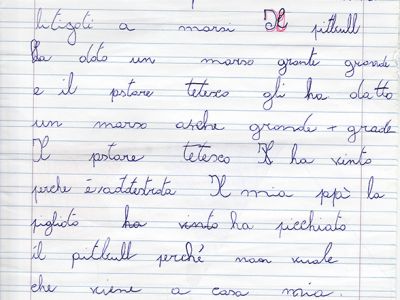 litigati a marsi Il pitbull
ha dato un marso grante grande
e il pstare tetesco gli ha datto
un marso anche grande + grade
Il pstare tetesco ha vinto
perche é addestrato Il mia ppà la
pigliato ha vinto ha picchiato
il pitbull perché non vuole
che viene a casa mia.